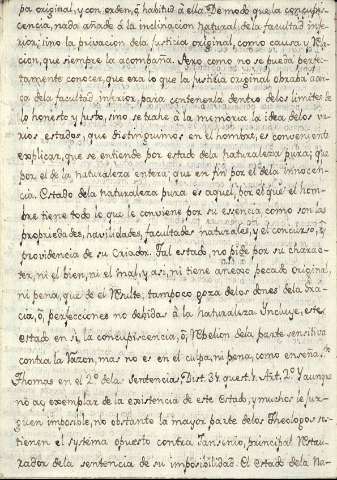 pa original, y con orden, ó habitud á ella. De modo que la concupis-
cencia, nada añade á la inclinacion natural de la facultad infe-
rior; sino la privacion de la justicia original, como causa, y Rela-
cion, que siempre la acompaña. Pero como no se pueda perfec-
tamente conocer, que era lo que la justicia original obraba acer-
ca de la facultad inferior, para contenerla dentro de los limites de
lo honesto y justo, sino se trahe à la memoria la idea de los va-
rios estados, que distinguimos en el hombre, es conveniente
explicar, que se entiende por estado de la naturaleza pura; que
por el de la naturaleza entera; que en fin por el de la innocen-
cia. Estado de la naturaleza pura es aquel, por el que el hom-
bre tiene todo lo que le conviene por su essencia, como son las
propriedades, havilidades, facultades naturales, y el concurso, ó
providencia de su Criador. Tal estado, no pide por su charac-
ter, ni el bien, ni el mal, y asi, ni tiene anexo pecado original,
ni pena, que de él Resulte, tampoco goza de los dones de la Gra-
cia, ó perfecciones no debidas á la naturaleza. Incluye, este
estado en sì, la concupiscencia, ó Rebelion de la parte sensitiva
contra la Razon, mas no es en el culpa, ni pena, como enseña Sto
Thomas en el 2º de las Sentencias, Dist. 31. quest. 1. Art. 2º Y aunque
no ay exemplar de la existencia de este Estado, y muchos le juz-
guen imposible, no obstante la mayor parte de los Theologos sos-
tienen el systema opuesto contra Jansenio, principal Restau-
rador de la sentencia de su imposibilidad. El Estado de la Na-